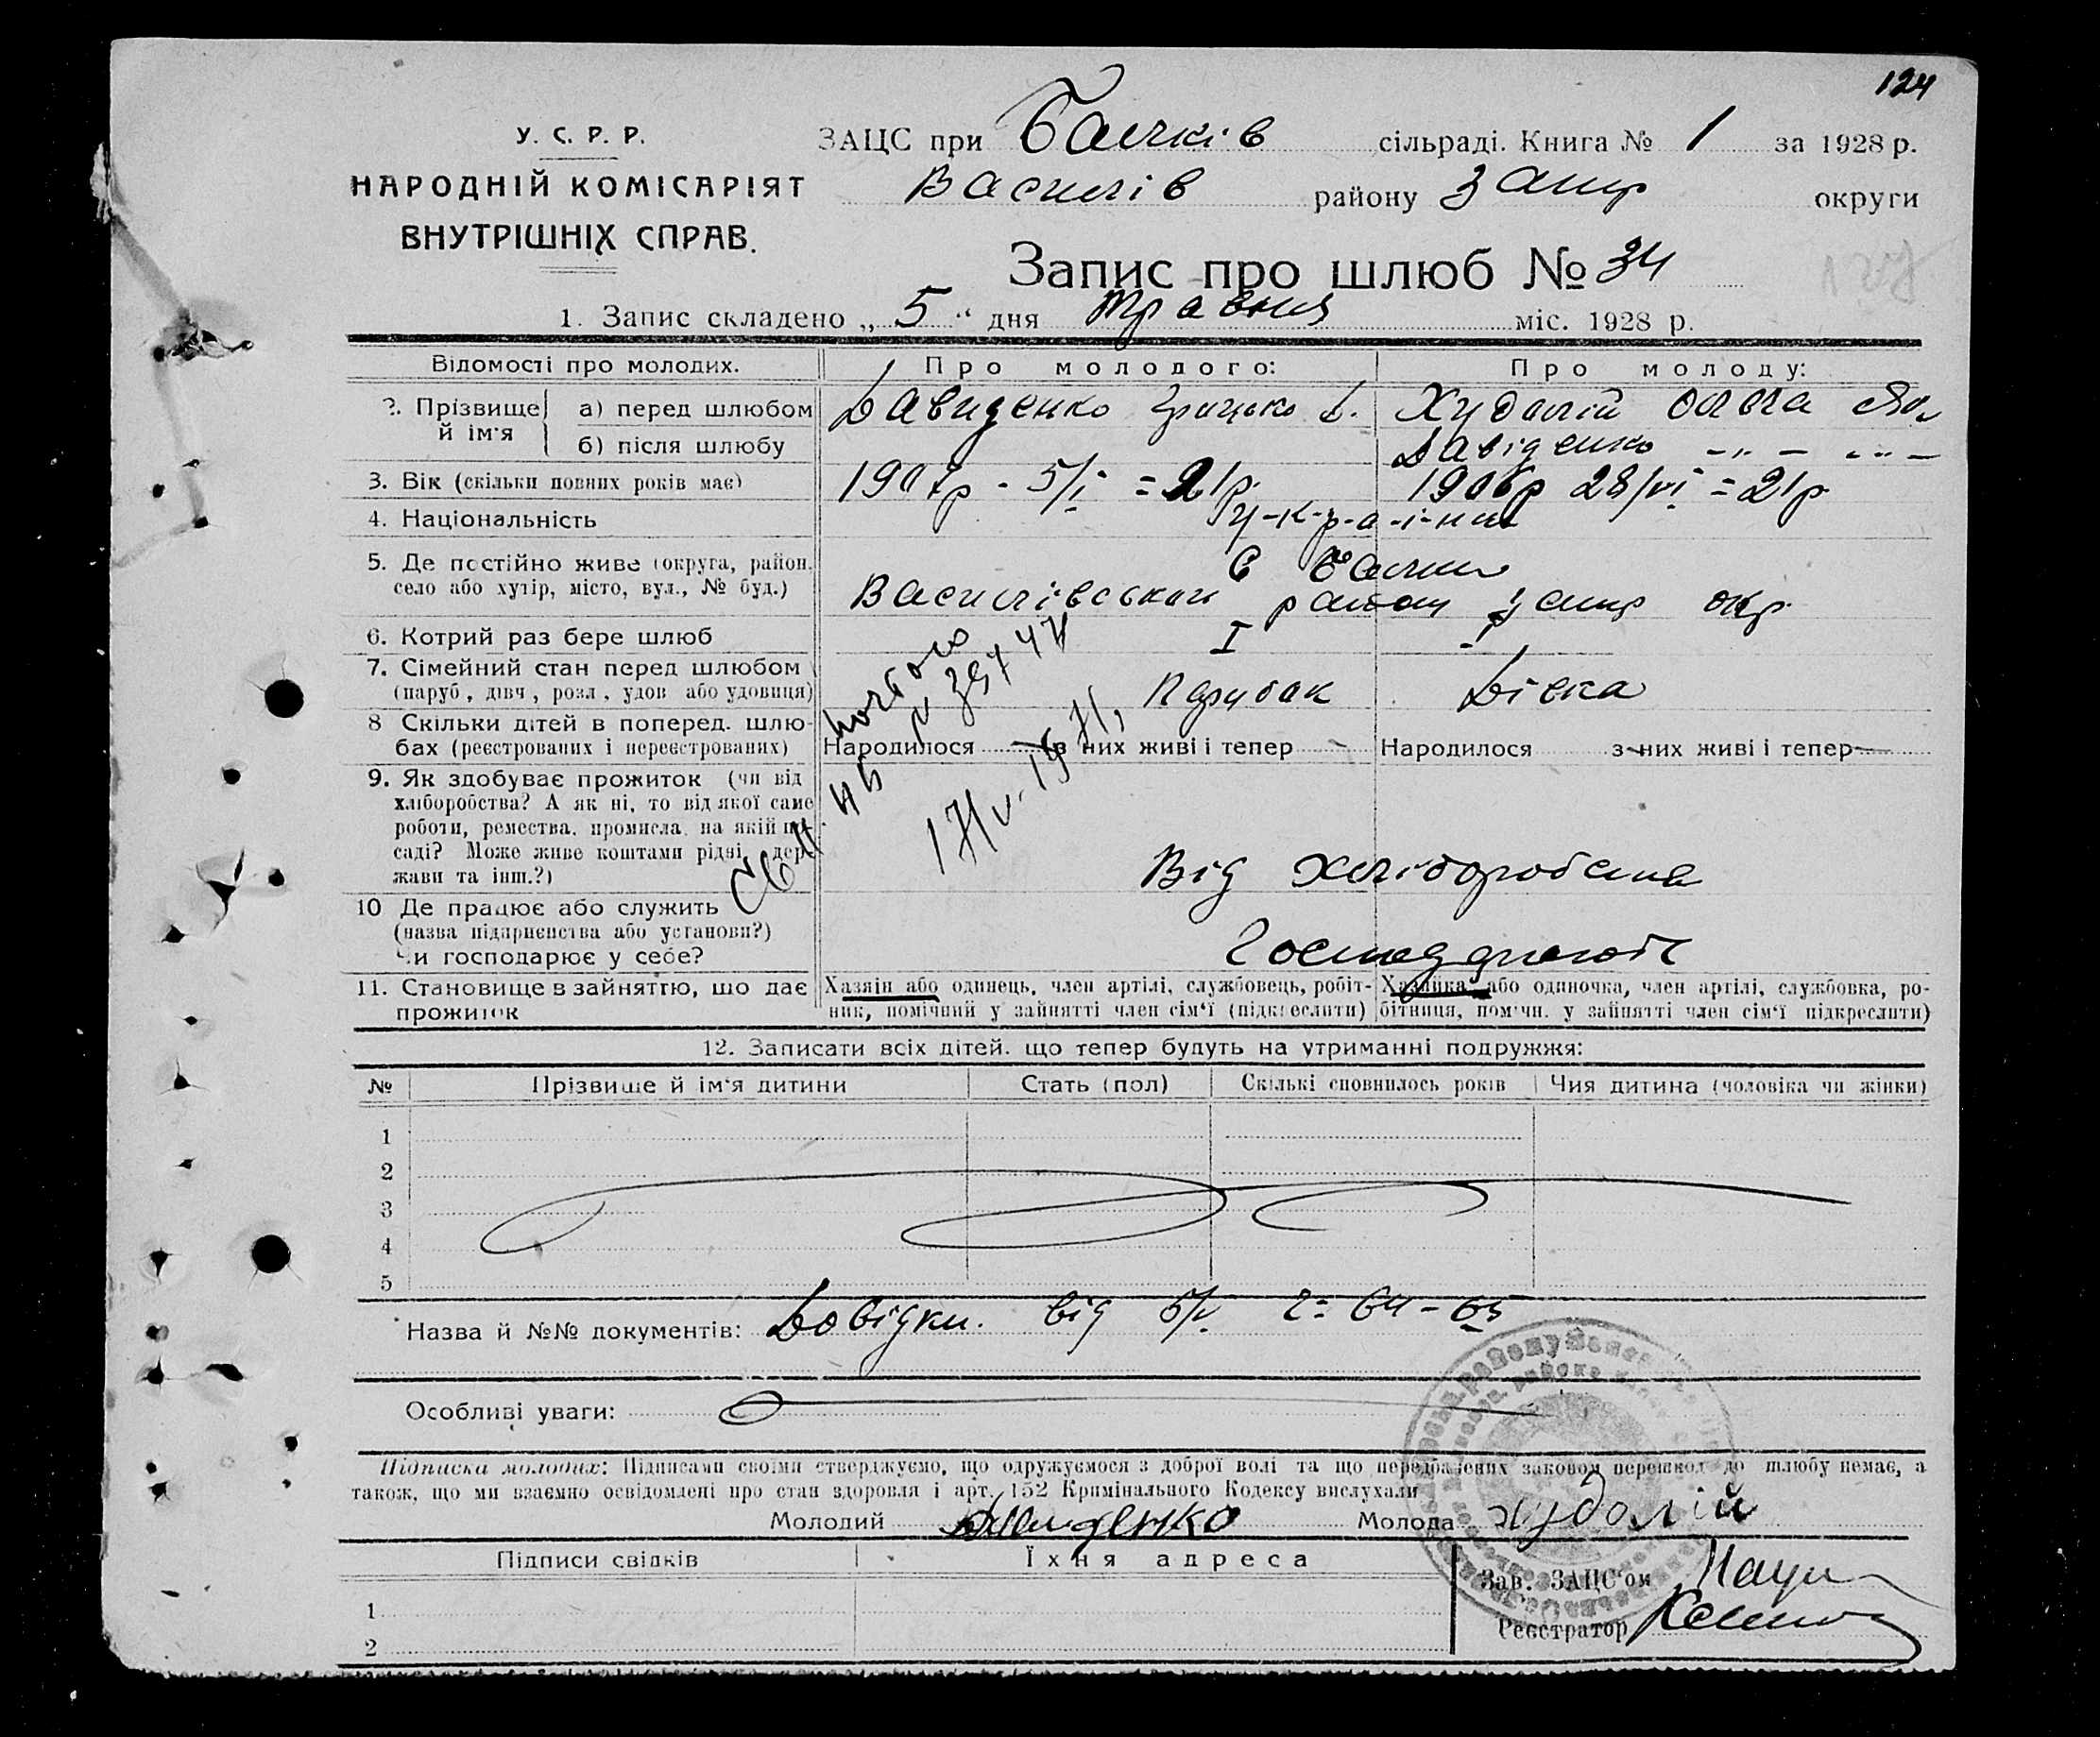 124
У. С. Р. Р.
НАРОДНІЙ КОМІСАРІЯТ
ВНУТРІШНІХ СПРАВ.
ЗАЦС при Балків сільраді. Книга № 1 за 1928 р.
Василів району Запр округи
Запис про шлюб № 34
1. Запис складено „ 5 “ дня травня міс. 1928 р.
Відомості про молодих. Про молодого: Про молоду:
2. Прізвище й ім'я а) перед шлюбом Давиденко Грицько Д. Худолій Олена
б) після шлюбу Давіденко -„- -„-
3. Вік (скільки повних років має) 1907р - 5/I = 21р. 1906р 28/VI = 21р.
4. Національність у-к-р-а-ї-н
5. Де постійно живе (округа, район, село або хутір, місто, вул., № буд.) с Балки
Василівський район Запр окр.
6. Котрий раз бере шлюб I
7. Сімейний стан перед шлюбом (паруб., дівч., розл., удов. або удовиця) Парубак Дівка
8 Скільки дітей в поперед. шлюбах (реєстрованих і нереєстрованих) Народилося з них живі і тепер Народилося з них живі і тепер
9. Як здобуває прожиток (чи від
хліборобства? А як ні, то від якої саме
роботи, ремества, промисла, на якій по-
саді? Може живе коштами рідні, дер-
жави та інш.?) Від хліборобства
10 Де працює або служить
(назва підприємства або установи?)
Чи господарює у себе?
11. Становище в зайняттю, що дає прожиток
Хазяїн або одинець, член артілі, службовець, робіт-
ник, помічний у зайнятті член сім'ї (підкреслити)
Хазяйка або одиночка, член артілі, службовка, ро-
бітниця, помічн. у зайнятті член сім'ї підкреслити)
12. Записати всіх дітей, що тепер будуть на утриманні подружжя:
№ Прізвище й ім'я дитини Стать (пол) Скількі сповнилось років Чия дитина (чоловіка чи жінки)
1
2
3
4
5
Назва й №№ документів: Довідки від 5/V 64-65
Особливі уваги:
Підписка молодих: Підписами своїми стверджуємо, що одружуємося з доброї волі та що передбачених законом перешкод до шлюбу немає, а
також, що ми взаємно освідомлені про стан здоровля і арт. 152 Кримінального Кодексу вислухали
Молодий Давиденко Молода Худолій
Підписи свідків Їхня адреса
Зав. ЗАЦС'ом
1
Реєстратор
2